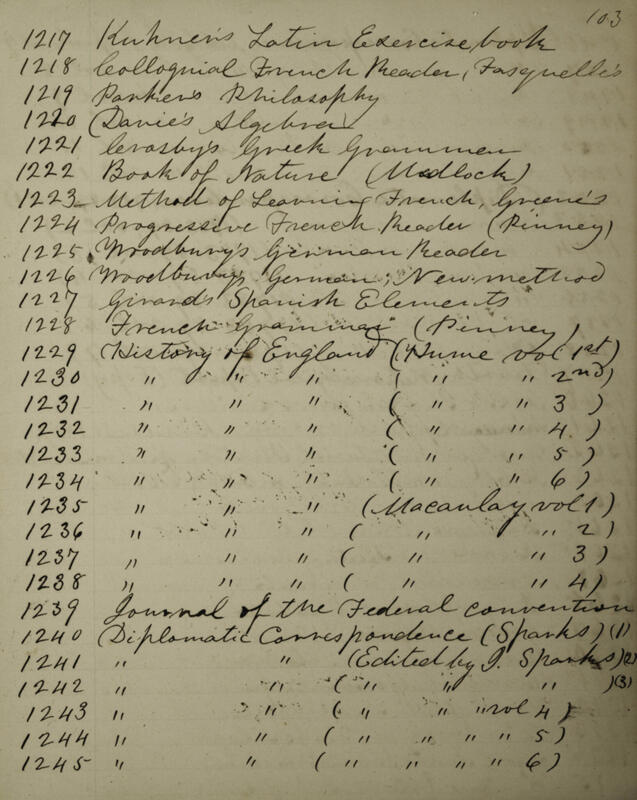 103
1217 Kuhner's Latin Exercise book
1218 Colloquial French Reader, Fasquelle's
1219 Parker's Philosophy
1220 (Davie's Algebra)
1221 Crosby's Greek Grammar
1222 Book of Nature (Medlock)
1223 Method of Learning French, Greene's
1224 Progressive French Reader (Pinney)
1225 Woodbury's German Reader
1226 Woodbury's German, New method
1227 Girard's Spanish Elements
1228 French Grammar (Pinney)
1229 History of England (Hume vol 1st)
1230 " " " ( " " 2nd)
1231 " " " ( " " 3 )
1232 " " " ( " " 4 )
1233 " " " ( " " 5 )
1234 " " " ( " " 6 )
1235 " " " (Macaulay vol 1)
1236 " " " ( " " 2 )
1237 " " " ( " " 3 )
1238 " " " ( " " 4 )
1239 Journal of the Federal convention
1240 Diplomatic Correspondence (Sparks) (1)
1241 " " (Edited by J. Sparks) (2)
1242 " " ( " " " ) (3)
1243 " " ( " " " vol 4 )
1244 " " ( " " " " 5 )
1245 " " ( " " " " 6 )